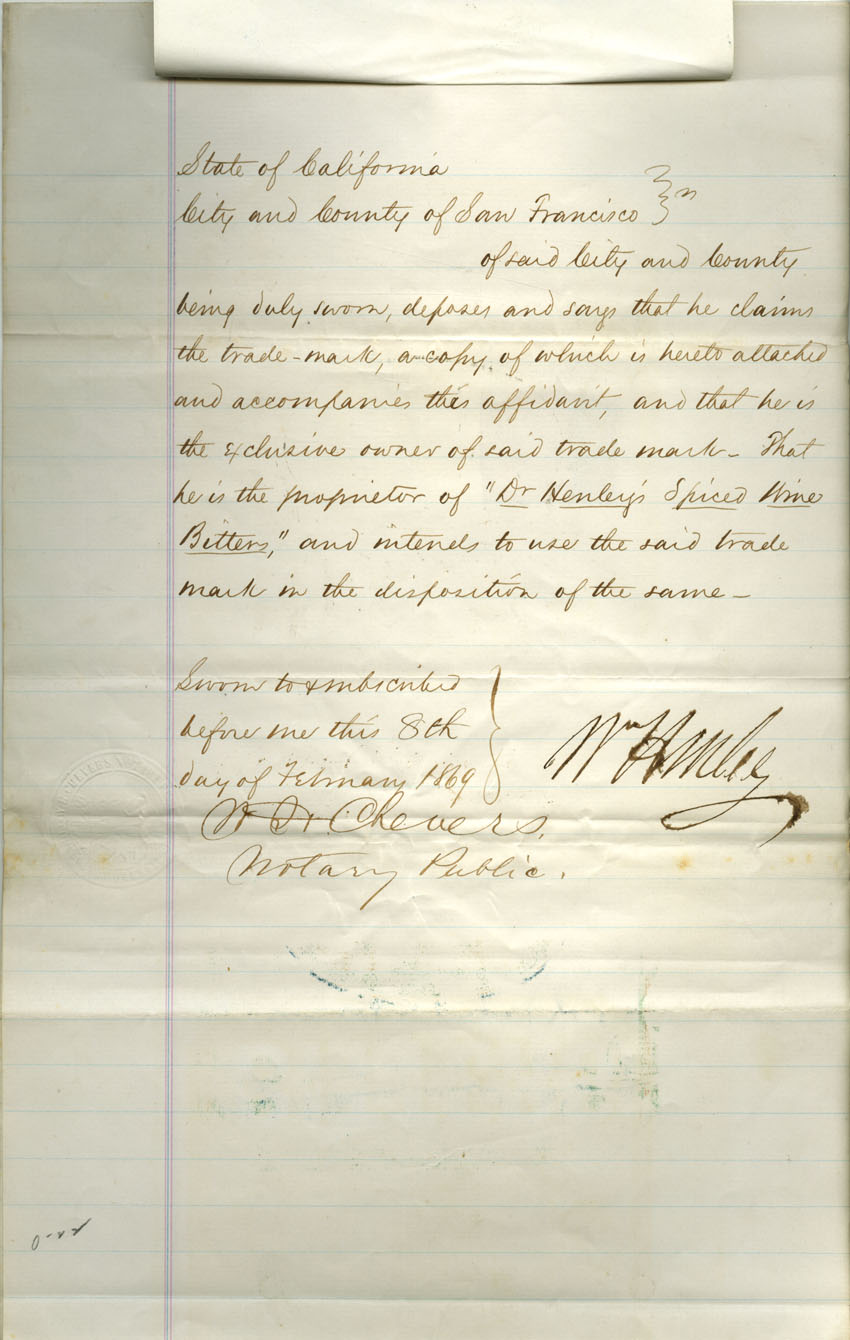 State of California
City and County of San Francisco } ss
of said City and County
being duly sworn, deposes and says that he claims
the trade-mark, a copy of which is hereto attached
and accompanies this affidavit, and that he is
the exclusive owner of said trade mark - That
he is the proprietor of "Dr Henley's Spiced Wine
Bitters," and intends to use the said trade
mark in the disposition of the same -
Sworn to & subscribed
before me this 8th
day of February 1869
Wm Henley
Chevers.
Notary Public.